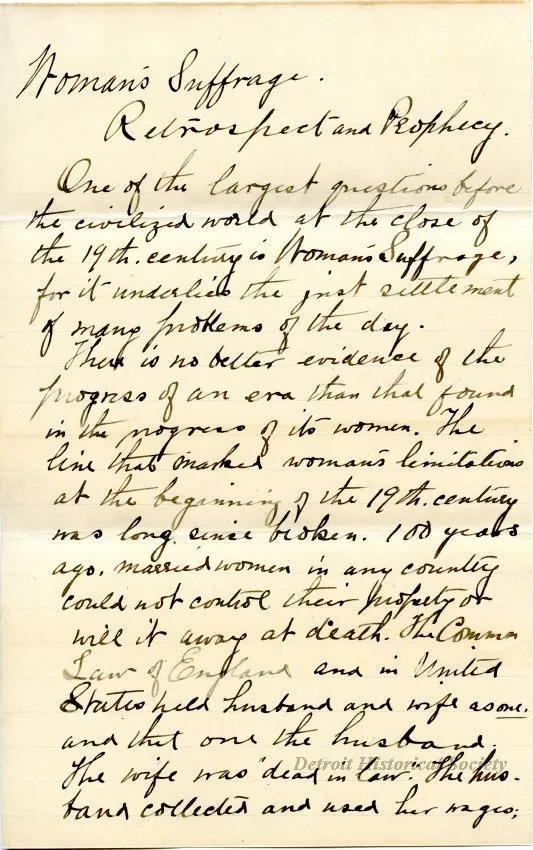 Woman's Suffrage.
Retrospect and Prophecy.
One of the largest questions before
the civilized world at the close of
the 19th. century is Woman's Suffrage,
for it underlies the just settlement
of many problems of the day.
There is no better evidence of the
progress of an era than that found
in the progress of its women. The
line that marked woman's limitations
at the beginning of the 19th. century
was long since broken. 100 years
ago. married women in any country
could not control their property or
will it away at death. The Common
Law of England and in United
States held husband and wife as one.
and that one the husband.
The wife was "dead in law". The hus-
band collected and used her wages;
Detroit Historical Society